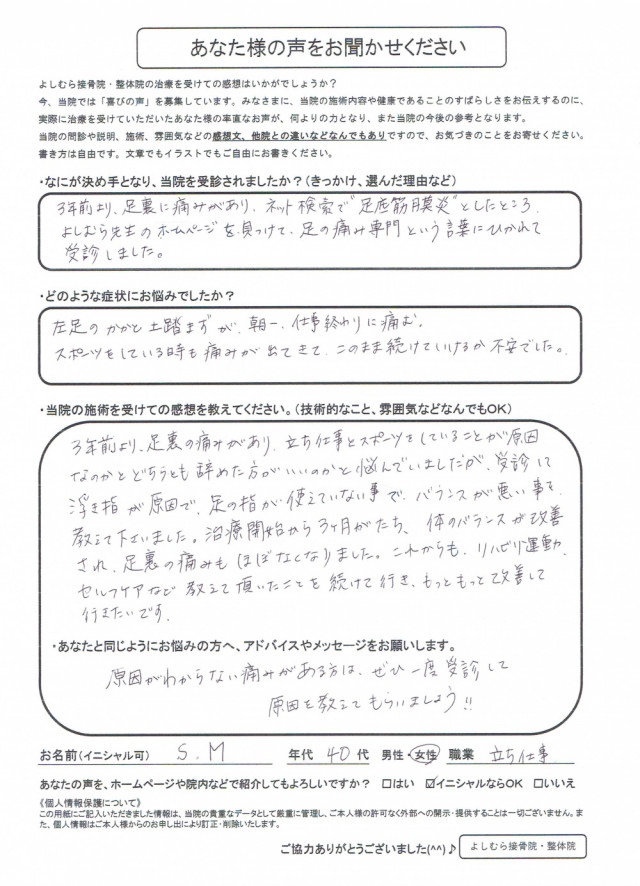 あなた様の声をお聞かせください
よしむら接骨院・整体院の治療を受けての感想はいかがでしょうか？
今、当院では「喜びの声」を募集しています。みなさまに、当院の施術内容や健康であることのすばらしさをお伝えするのに、
実際に治療を受けていただいたあなた様の率直なお声が、何よりの力となり、また当院の今後の参考となります。
当院の問診や説明、施術、雰囲気などの感想文、他院との違いなどなんでもありですので、お気づきのことをお寄せください。
書き方は自由です。文章でもイラストでもご自由にお書きください。
・なにが決め手となり、当院を受診されましたか？（きっかけ、選んだ理由など）
3年前より、足裏に痛みがあり、ネット検索で"足底筋膜炎"としたところ、
よしむら先生のホームページを見つけて、足の痛み専門という言葉にひかれて
受診しました。
・どのような症状にお悩みでしたか？
左足のかかと土踏まずが、朝一、仕事終わりに痛む。
スポーツをしている時も痛みが出てきて、このまま続けていけるか不安でした。
・当院の施術を受けての感想を教えてください。（技術的なこと、雰囲気などなんでもOK）
3年前より、足裏の痛みがあり、立ち仕事とスポーツをしていることが原因
なのかとどちらとも辞めた方がいいのかと悩んでいましたが、受診して
浮き指が原因で、足の指が使えていない事で、バランスが悪い事を
教えて下さいました。治療開始から3ヶ月がたち、体のバランスが改善
され、足裏の痛みもほぼなくなりました。これからも、リハビリ運動、
セルフケアなど教えて頂いたことを続けて行き、もっともっと改善して
行きたいです。
・あなたと同じようにお悩みの方へ、アドバイスやメッセージをお願いします。
原因がわからない痛みがある方は、ぜひ一度受診して
原因を教えてもらいましょう!!
お名前（イニシャル可） S.M 年代 40代 男性・女性 職業 立ち仕事
あなたの声を、ホームページや院内などで紹介してもよろしいですか？ □はい ☑イニシャルならOK □いいえ
《個人情報保護について》
この用紙にご記入いただきました情報は、当院の貴重なデータとして厳重に管理し、ご本人様の許可なく外部への開示・提供することは一切ございません。ま
た、個人情報はご本人様からのお申し出により訂正・削除いたします。
ご協力ありがとうございました(^^)♪ よしむら接骨院・整体院